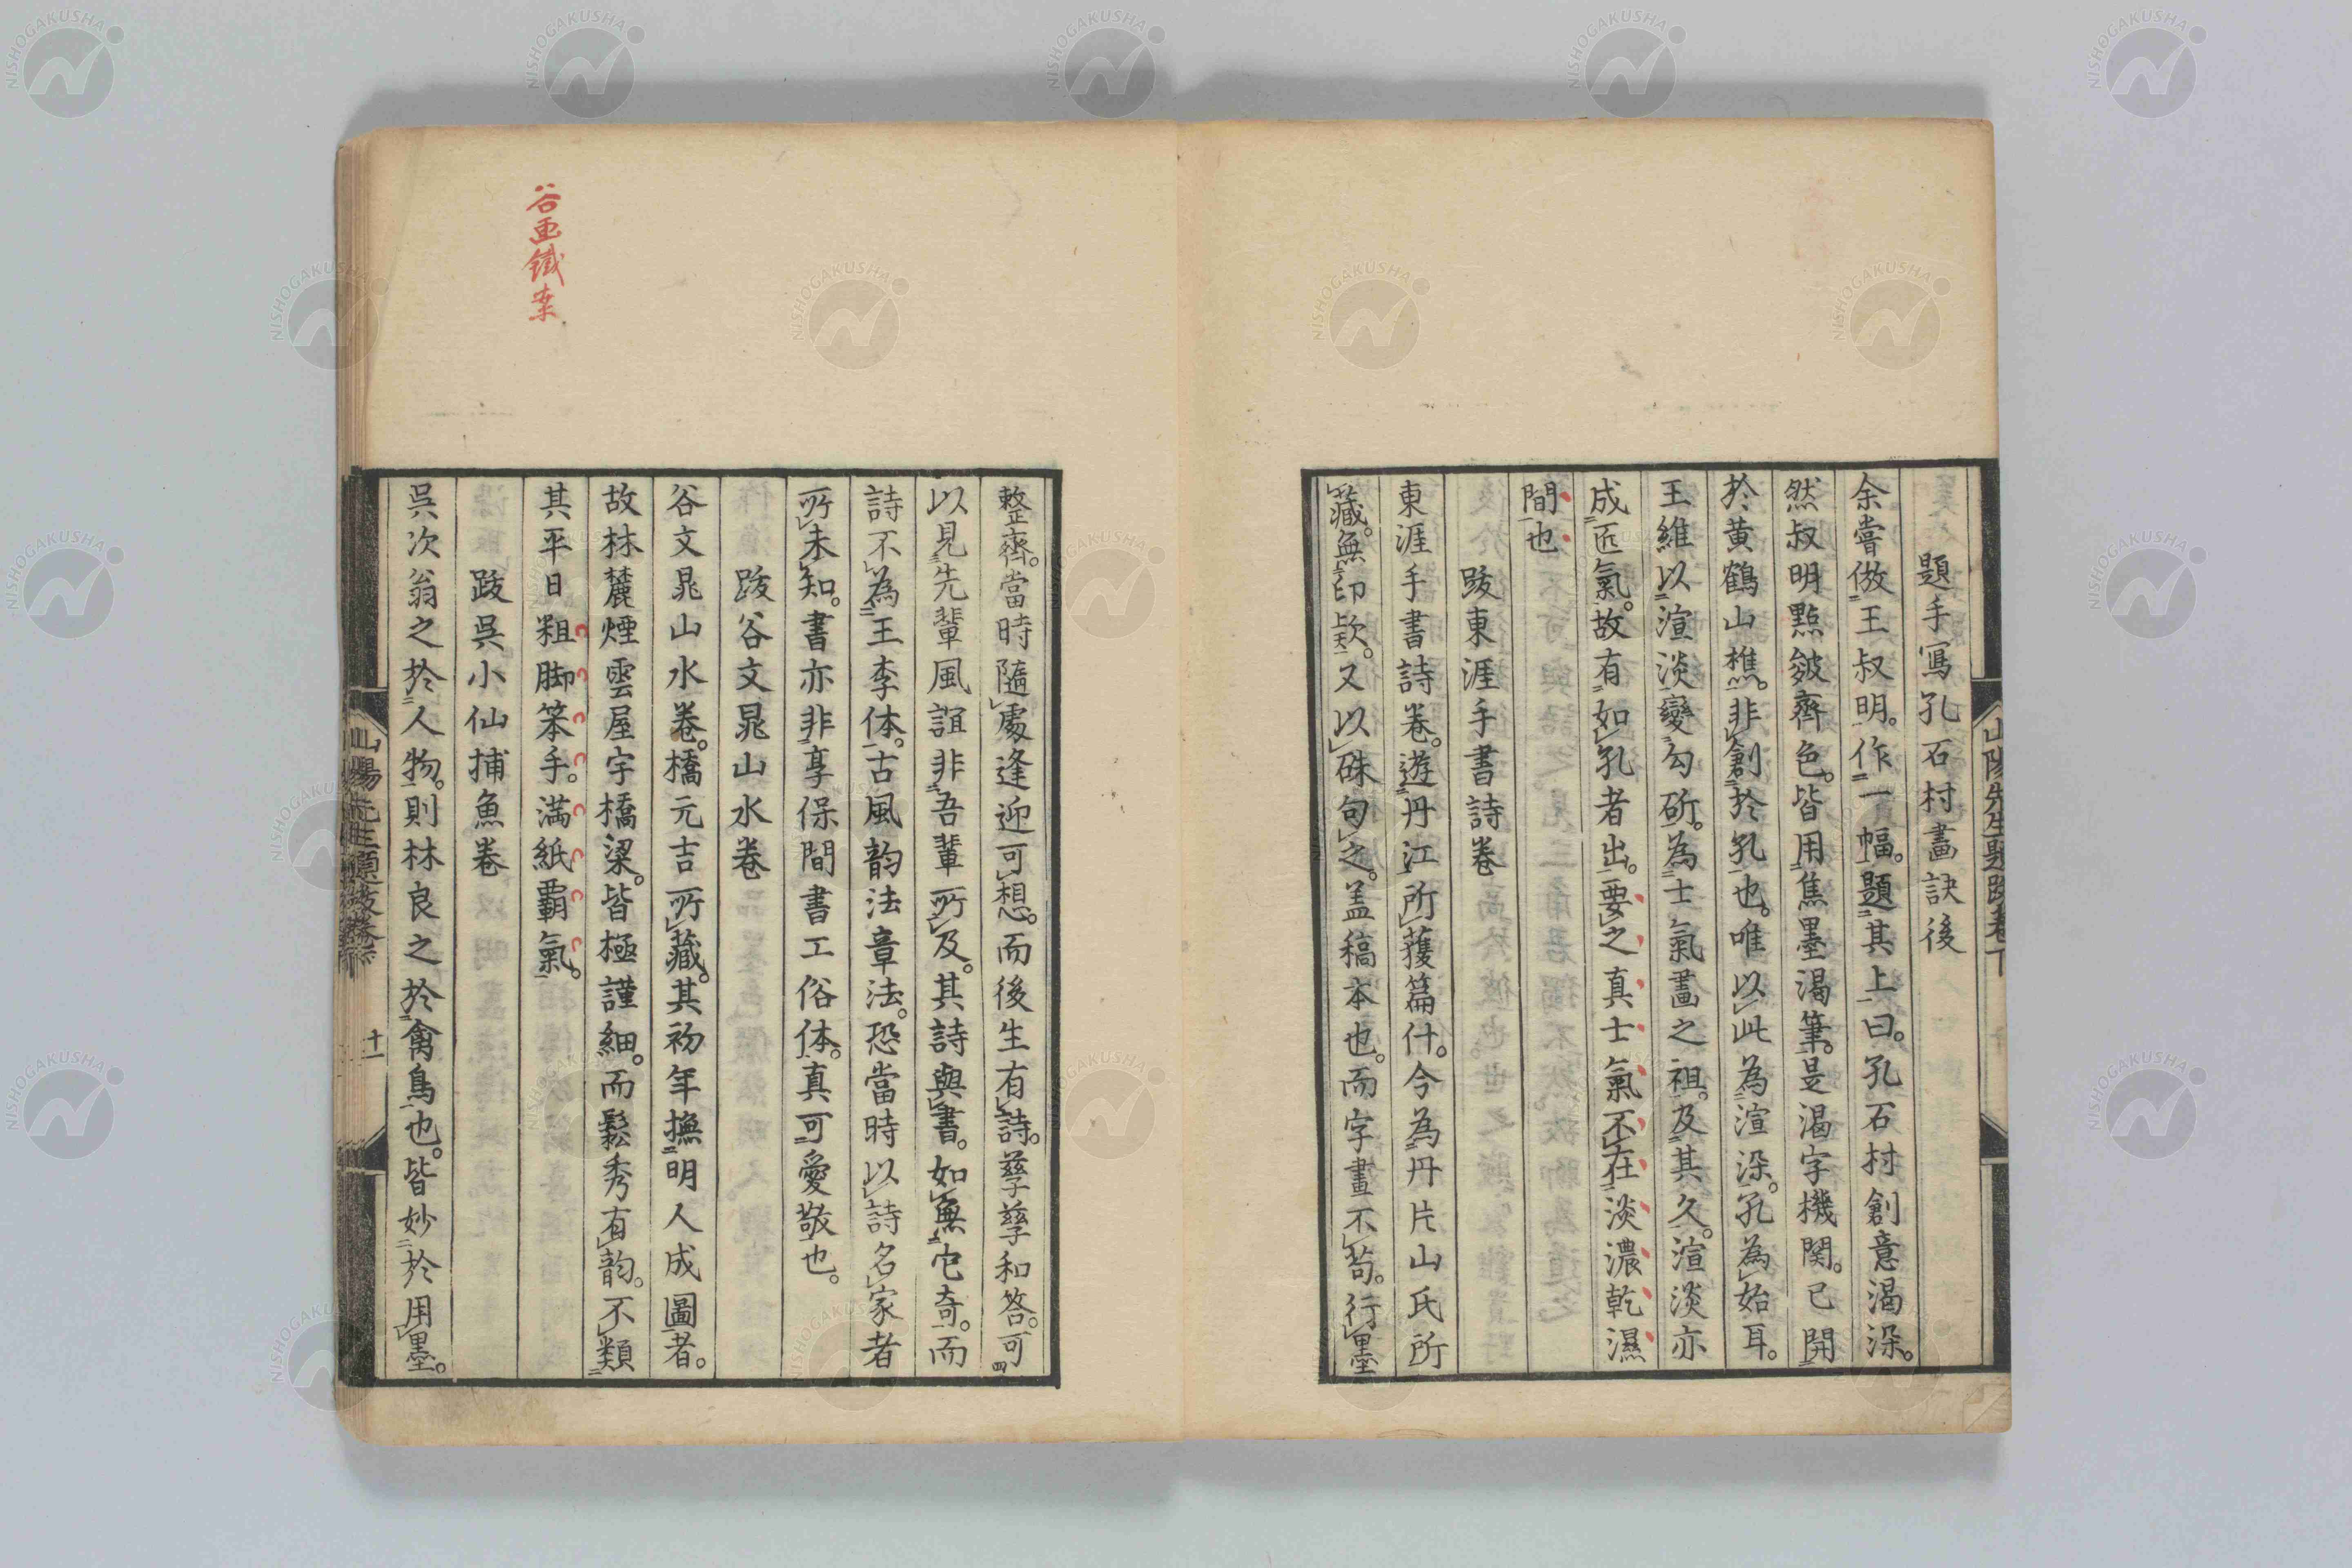 題手寫孔石村畫訣後
余嘗倣王叔明。作一幅。題其上曰。孔石村創意渴染。
然叔明點皴齊色。皆用焦墨渴筆。是渴字機関。已開
於黃鶴山樵。非創於孔也。唯以此為渲染。孔為始耳。
王維以渲淡變勾斫。為士氣畫之祖。及其久。渲淡亦
成匠氣。故有如孔者出。要之真士氣不在淡濃乾濕
間也
跋東涯手書詩卷
東涯手書詩卷。遊丹江所獲篇什。今為丹片山氏所
藏。無印款。又以硃句之。盖稿本也。而字畫不苟。行墨
整齊。當時隨處逢迎可想。而後生有詩。孳孳和答。可
以見先輩風誼非吾輩所及。其詩與書。如無它奇。而
詩不為王李体。古風韵法章法。恐當時以詩名家者
所未知。書亦非享保間書工俗体。真可愛敬也。
跋谷文晁山水卷
谷文晁山水卷。橋元吉所藏。其初年撫明人成圖者。
故林麓煙雲屋宇橋梁。皆極謹細。而鬆秀有韵。不類
其平日粗脚笨手。満紙覇氣。
跋呉小仙捕魚卷
呉次翁之於人物。則林良之於禽鳥也。皆妙於用墨。
谷画鐵案
山陽先生題跋卷下
山陽先生題跋卷下
十一
NISHOGAKUSHA